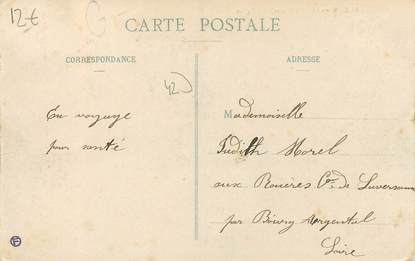 12€
CARTE POSTALE
CORRESPONDANCE
ADRESSE
42
En voyage
pour santé
Mademoiselle
Judith Morel
aux Rouères Cne de
par Bourg Argental
Loire